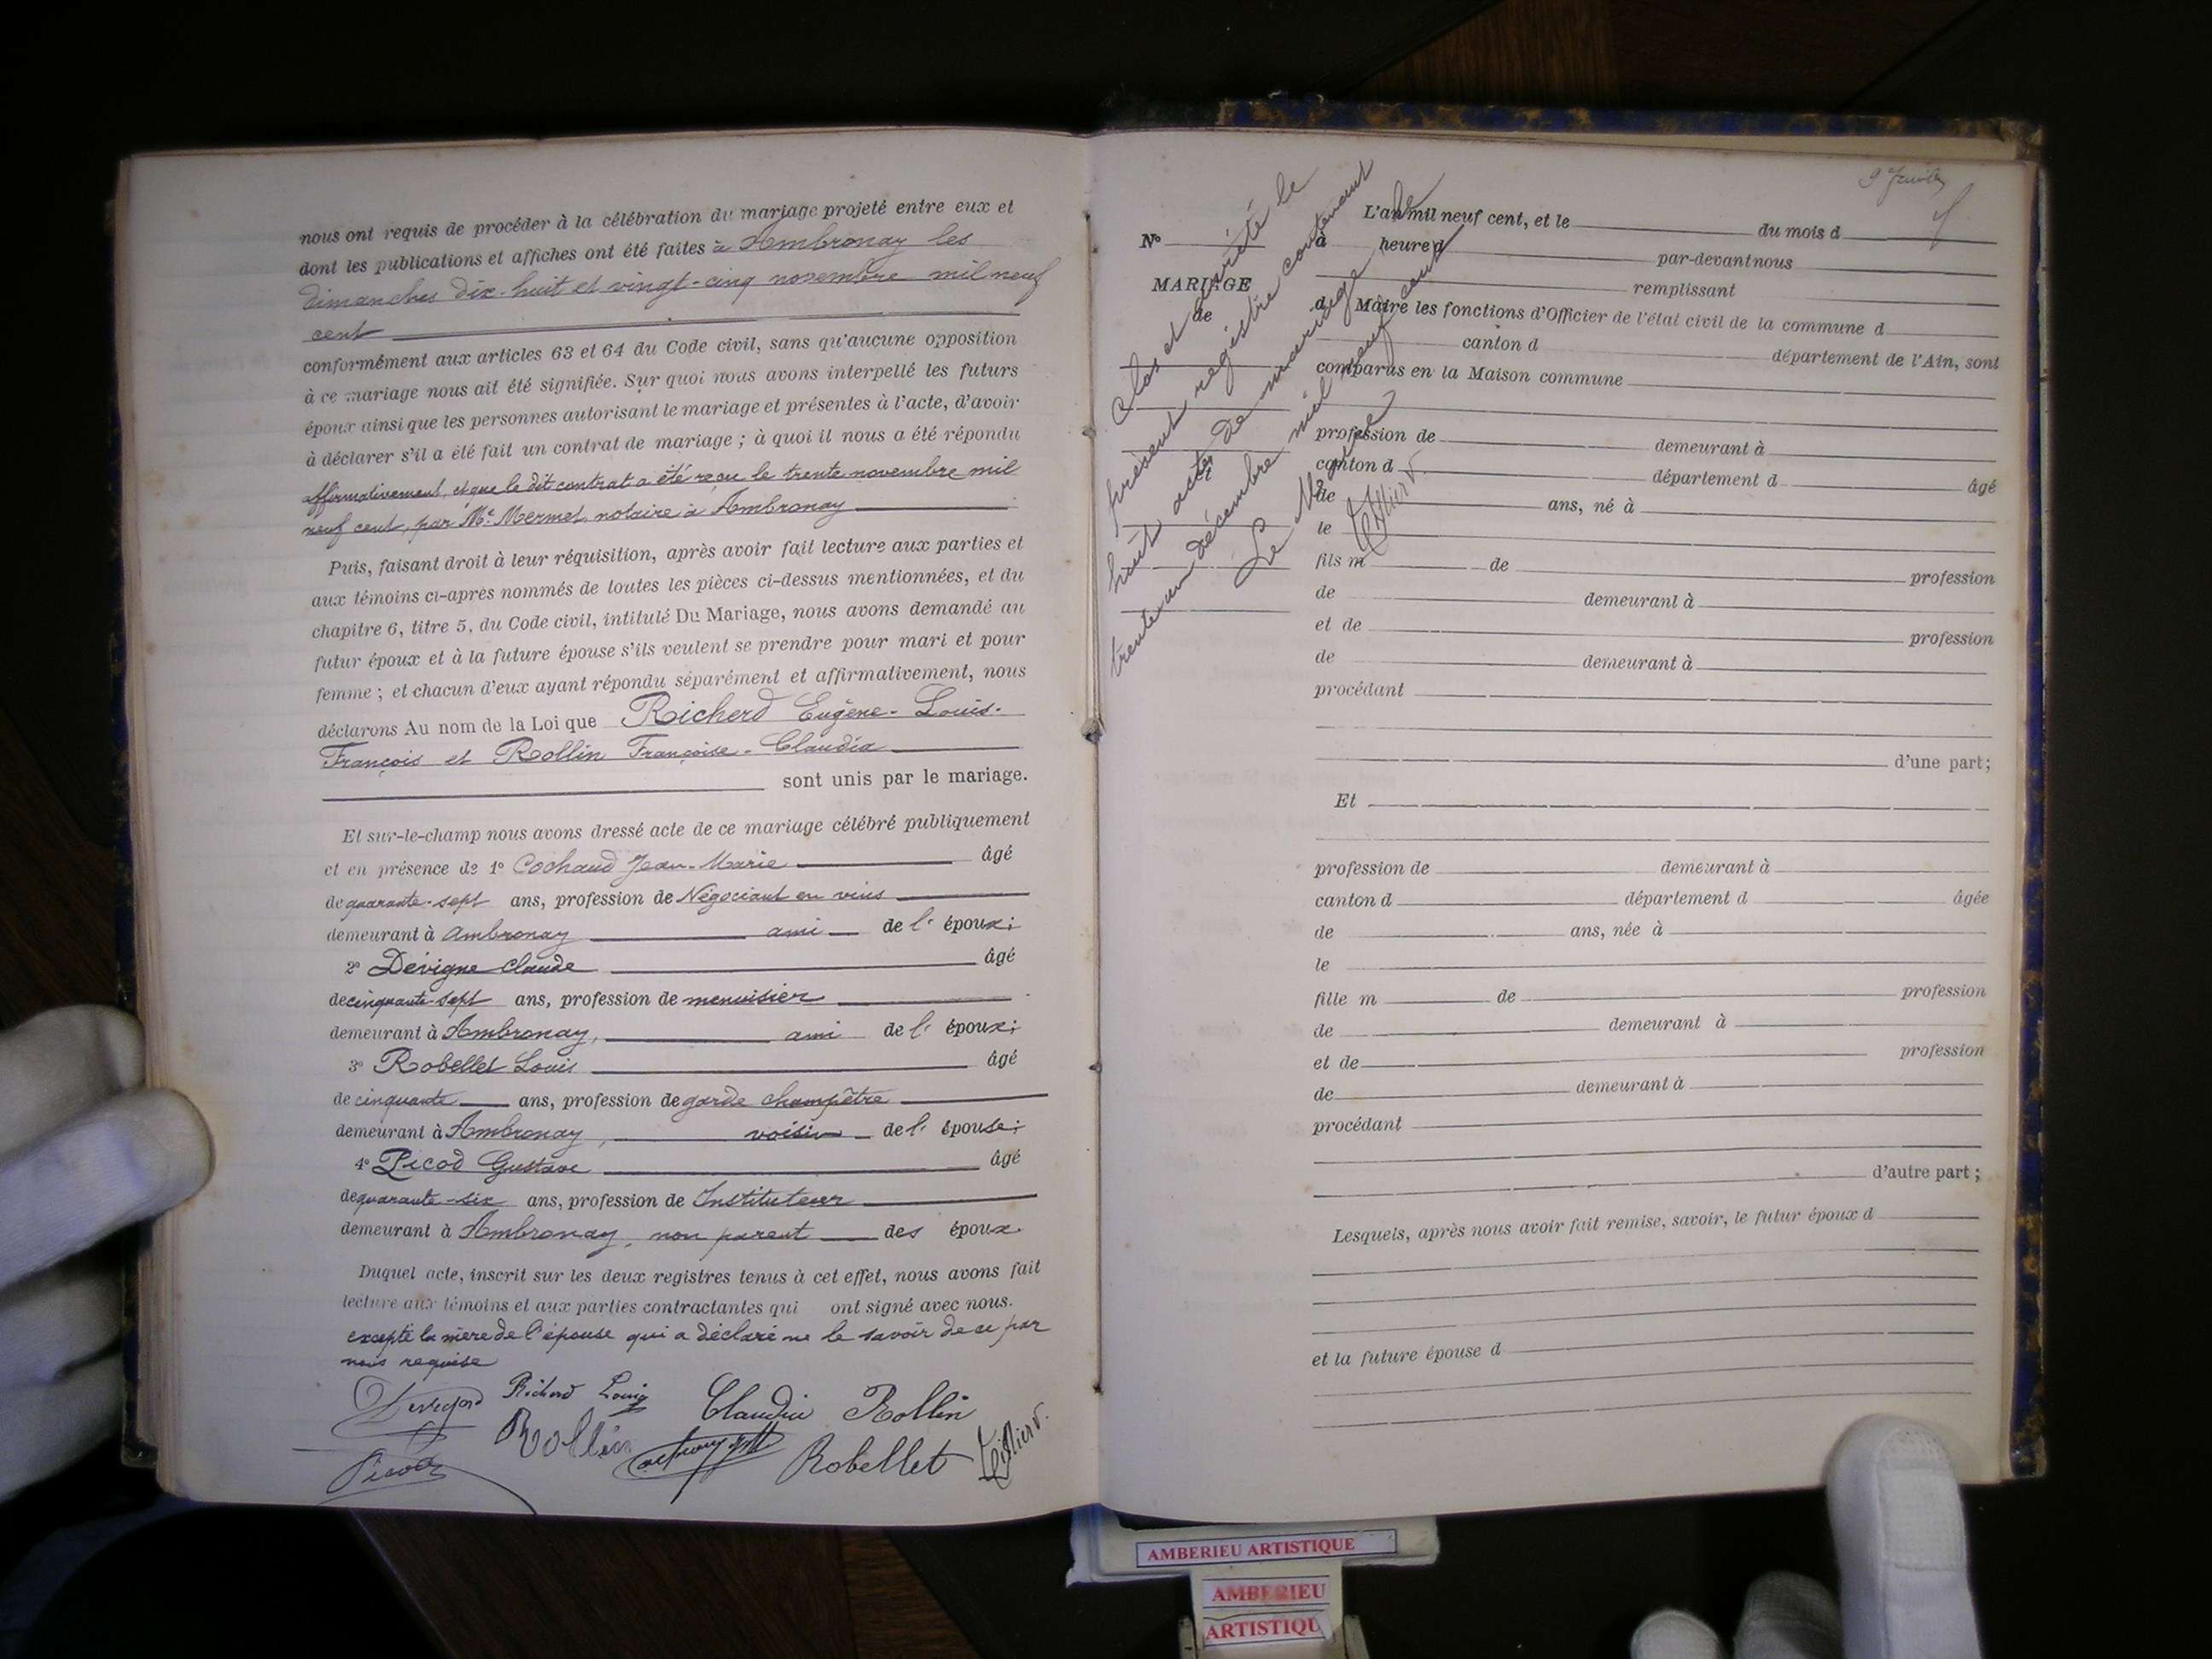 nous ont requis de procéder à la célébration du mariage projeté entre eux et
dont les publications et affiches ont été faites à Ambronay les
dimanches dix-huit et vingt-cinq novembre mil neuf
cent
conformément aux articles 63 et 64 du Code civil, sans qu'aucune opposition
à ce mariage nous ait été signifiée. Sur quoi nous avons interpellé les futurs
époux ainsi que les personnes autorisant le mariage et présentes à l'acte, d'avoir
à déclarer s'il a été fait un contrat de mariage ; à quoi il nous a été répondu
affirmativement, et que le dit contrat a été reçu le trente novembre mil
neuf cent, par Me Mermet, notaire à Ambronay
Puis, faisant droit à leur réquisition, après avoir fait lecture aux parties et
aux témoins ci-après nommés de toutes les pièces ci-dessus mentionnées, et du
chapitre 6, titre 5, du Code civil, intitulé Du Mariage, nous avons demandé au
futur époux et à la future épouse s'ils veulent se prendre pour mari et pour
femme ; et chacun d'eux ayant répondu séparément et affirmativement, nous
déclarons Au nom de la Loi que Richerd Eugène-Louis-
François et Rollin Françoise-Claudia
sont unis par le mariage.
Et sur-le-champ nous avons dressé acte de ce mariage célébré publiquement
et en présence de 1° Cochaud Jean-Marie âgé
de quarante-sept ans, profession de Négociant en vins
demeurant à Ambronay ami de l' époux;
2° Dévigne Claude âgé
de cinquante-sept ans, profession de menuisier
demeurant à Ambronay, ami de l' époux;
3° Robellet Louis âgé
de cinquante ans, profession de garde champêtre
demeurant à Ambronay, voisin de l' épouse;
4° Picod Gustave âgé
de quarante-six ans, profession de Instituteur
demeurant à Ambronay, non parent des époux.
Duquel acte, inscrit sur les deux registres tenus à cet effet, nous avons fait
lecture aux témoins et aux parties contractantes qui ont signé avec nous.
excepté la mère de l'épouse qui a déclaré ne le savoir de ce par
nous requise
Richerd Louis Claudia Rollin
Rollin Robellet
Picod
9 Janvier
N°
MARIAGE
de
et
Clos et arrêté le
présent registre contenant
huit actes de mariage le
trente un décembre mil neuf cent
Le Maire
L'an mil neuf cent, et le du mois d
à heure d par-devant nous
remplissant
d Maire les fonctions d'Officier de l'état civil de la commune d
canton d département de l'Ain, sont
comparus en la Maison commune
profession de demeurant à
canton d département d âgé
de ans, né à
le
fils m de profession
de demeurant à
et de profession
de demeurant à
procédant
d'une part;
Et
profession de demeurant à
canton d département d âgée
de ans, née à
le
fille m de profession
de demeurant à
et de profession
de demeurant à
procédant
d'autre part;
Lesquels, après nous avoir fait remise, savoir, le futur époux d
et la future épouse d
AMBERIEU ARTISTIQUE
AMBERIEU
ARTISTIQU